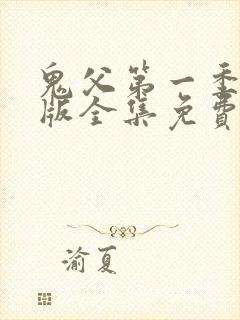 鬼父第一季
版全集免费
渝夏